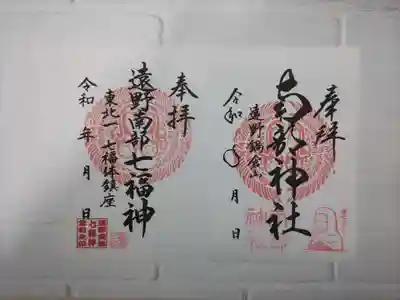 奉拝
南部神社
遠野鍋倉山
令和 年 月 日
奉拝
遠野南部七福神
東北一 七福体鎮座
令和 年 月 日
七福神